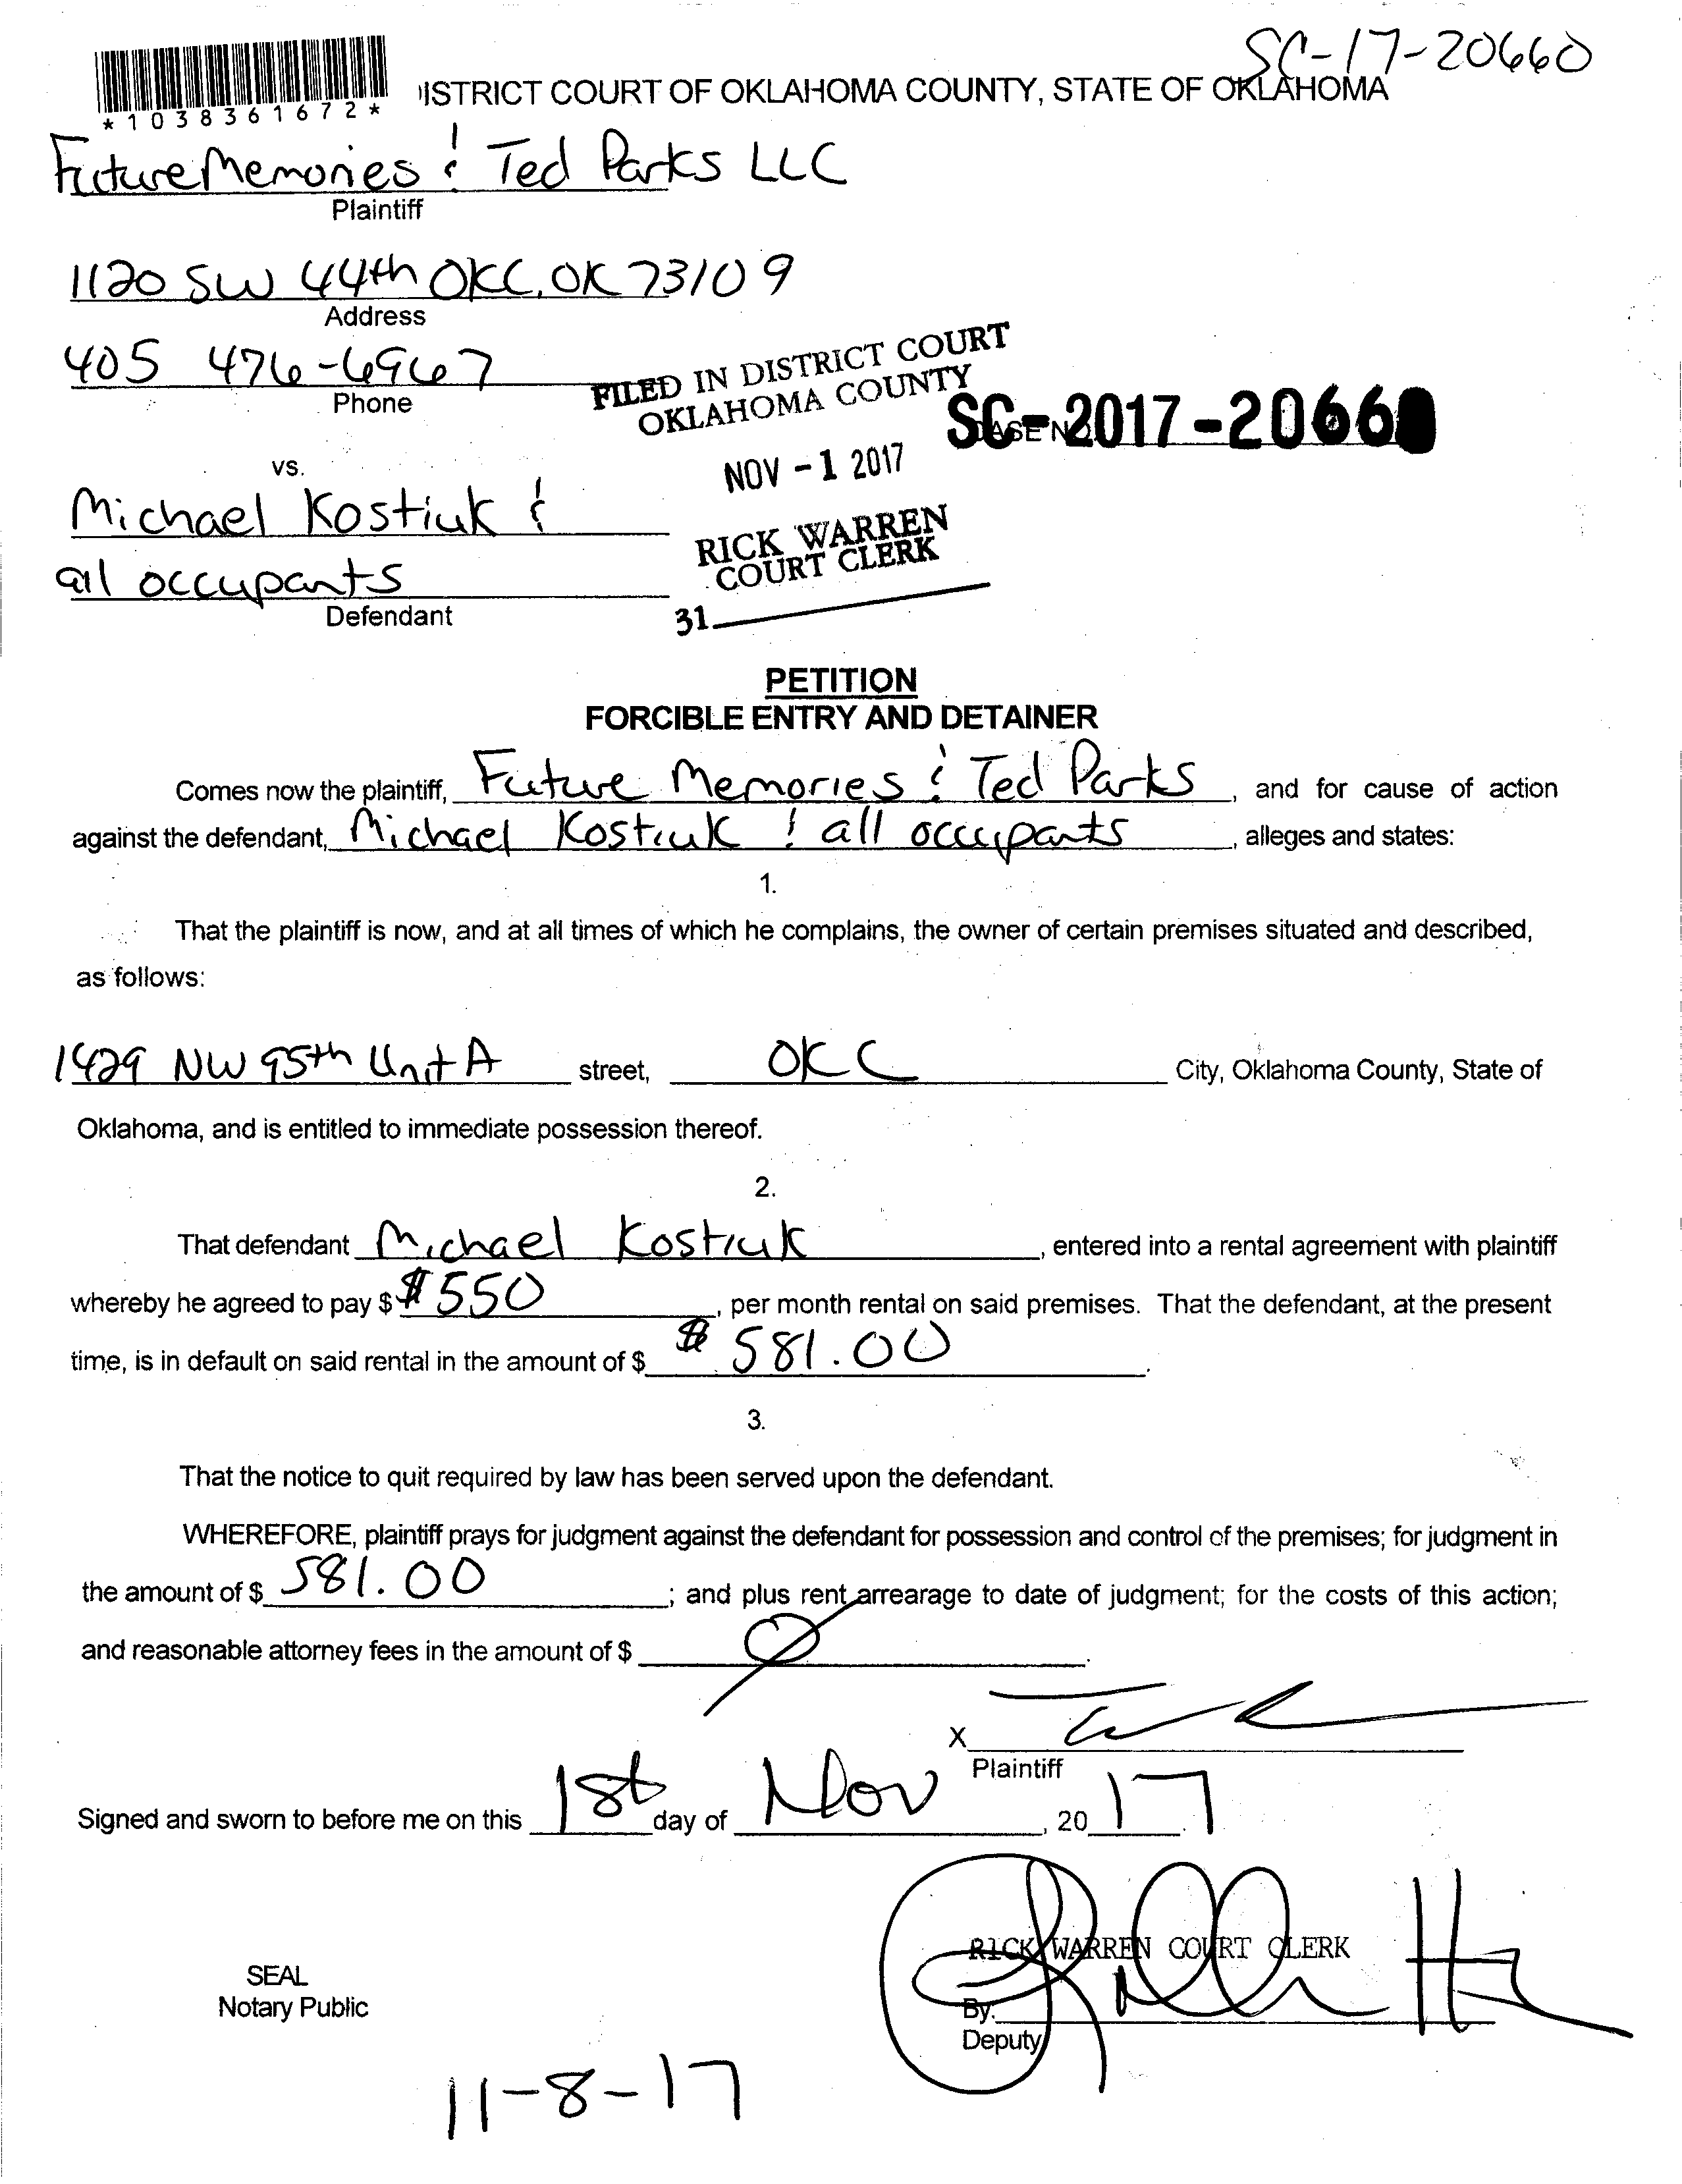 SC-17-20660
*1038361672*
ISTRICT COURT OF OKLAHOMA COUNTY, STATE OF OKLAHOMA
Future Memories & Ted Parks LLC
Plaintiff
1120 SW 44th OKC, OK 73109
Address
405 476-6967
Phone
FILED IN DISTRICT COURT
OKLAHOMA COUNTY
SC-2017-20660
CASE NO.
NOV -1 2017
vs.
Michael Kostiuk &
RICK WARREN
COURT CLERK
all occupants
Defendant
31
PETITION
FORCIBLE ENTRY AND DETAINER
Comes now the plaintiff, Future Memories & Ted Parks, and for cause of action
against the defendant, Michael Kostiuk & all occupants, alleges and states:
1.
That the plaintiff is now, and at all times of which he complains, the owner of certain premises situated and described,
as follows:
1429 NW 95th Unit A street, OKC City, Oklahoma County, State of
Oklahoma, and is entitled to immediate possession thereof.
2.
That defendant Michael Kostiuk, entered into a rental agreement with plaintiff
whereby he agreed to pay $ $550, per month rental on said premises. That the defendant, at the present
time, is in default on said rental in the amount of $ $581.00.
3.
That the notice to quit required by law has been served upon the defendant.
WHEREFORE, plaintiff prays for judgment against the defendant for possession and control of the premises; for judgment in
the amount of $ 581.00; and plus rent arrearage to date of judgment; for the costs of this action;
and reasonable attorney fees in the amount of $ 0.
X
Plaintiff
Signed and sworn to before me on this 1st day of Nov, 2017.
RICK WARREN COURT CLERK
SEAL
Notary Public
By.
Deputy
11-8-17